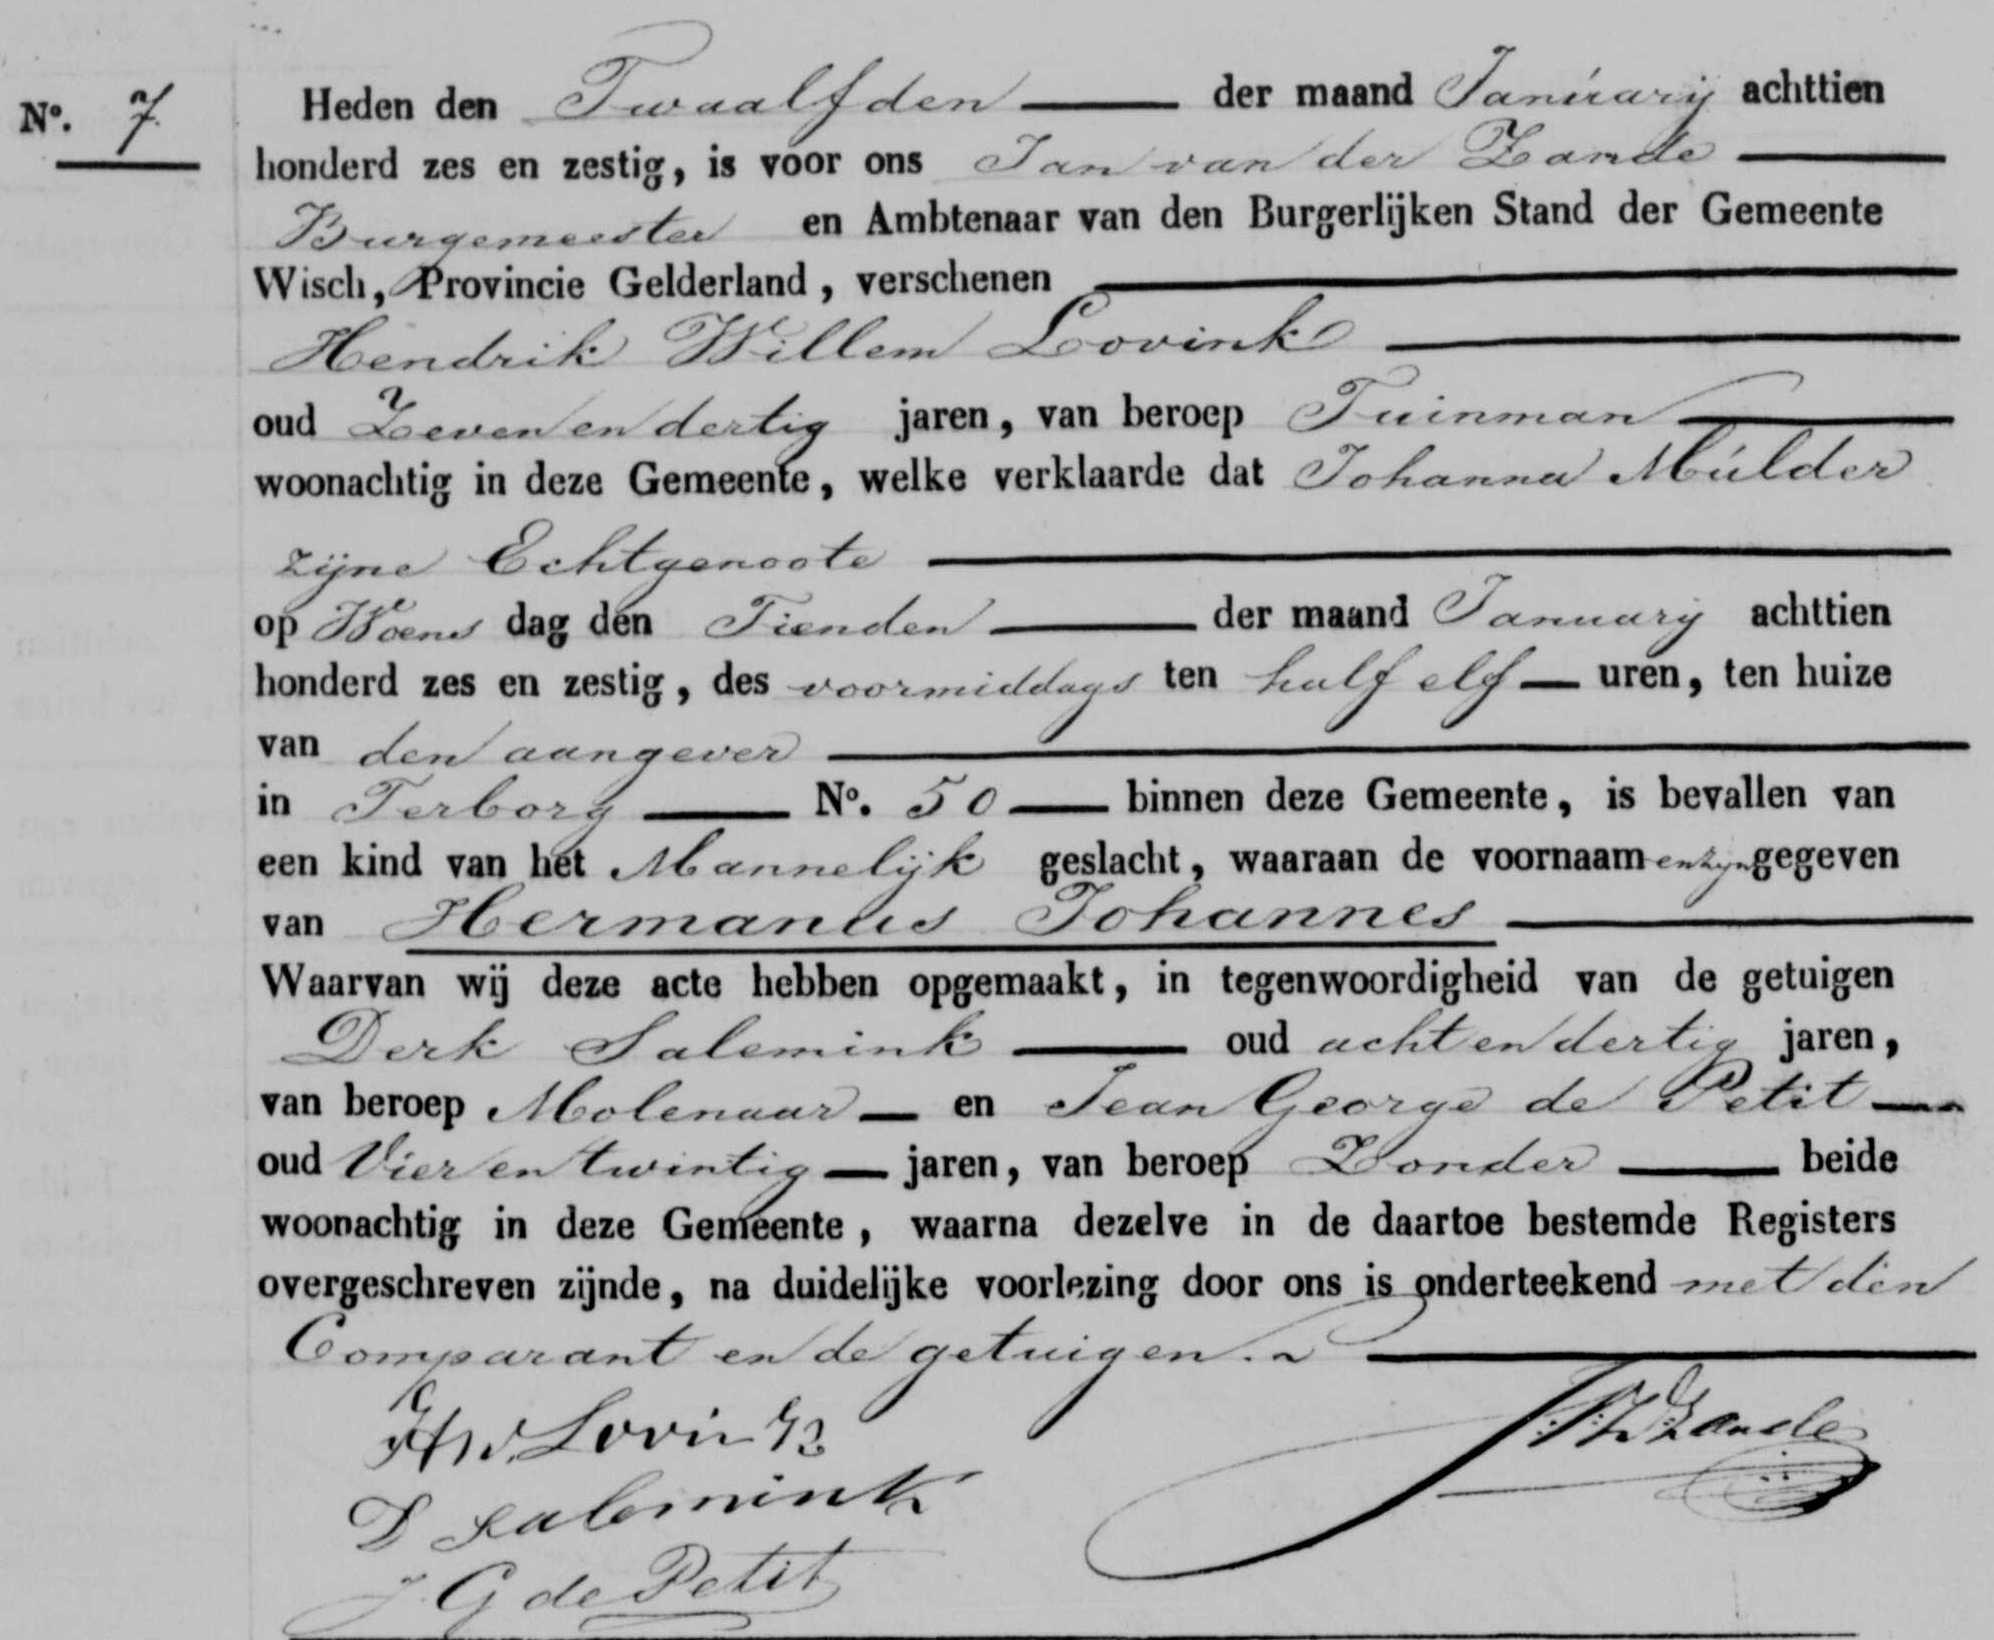 No. 7
Heden den Twaalfden der maand Januarij achttien
honderd zes en zestig, is voor ons Jan van der Zande
Burgemeester en Ambtenaar van den Burgerlijken Stand der Gemeente
Wisch, Provincie Gelderland, verschenen
Hendrik Willem Lovink
oud Zeven en dertig jaren, van beroep Tuinman
woonachtig in deze Gemeente, welke verklaarde dat Johanna Mulder
zijne Echtgenoote
op Woens dag den Tienden der maand January achttien
honderd zes en zestig, des voormiddags ten half elf uren, ten huize
van den aangever
in Terborg No. 50 binnen deze Gemeente, is bevallen van
een kind van het Mannelijk geslacht, waaraan de voornaamen zijn gegeven
van Hermanus Johannes
Waarvan wij deze acte hebben opgemaakt, in tegenwoordigheid van de getuigen
Derk Salemink oud acht en dertig jaren,
van beroep Molenaar en Jean George de Petit
oud Vier en twintig jaren, van beroep Zonder beide
woonachtig in deze Gemeente, waarna dezelve in de daartoe bestemde Registers
overgeschreven zijnde, na duidelijke voorlezing door ons is onderteekend met den
Comparant en de getuigen.
HW. Lovink
D Salemink
J. G de Petit
Zande